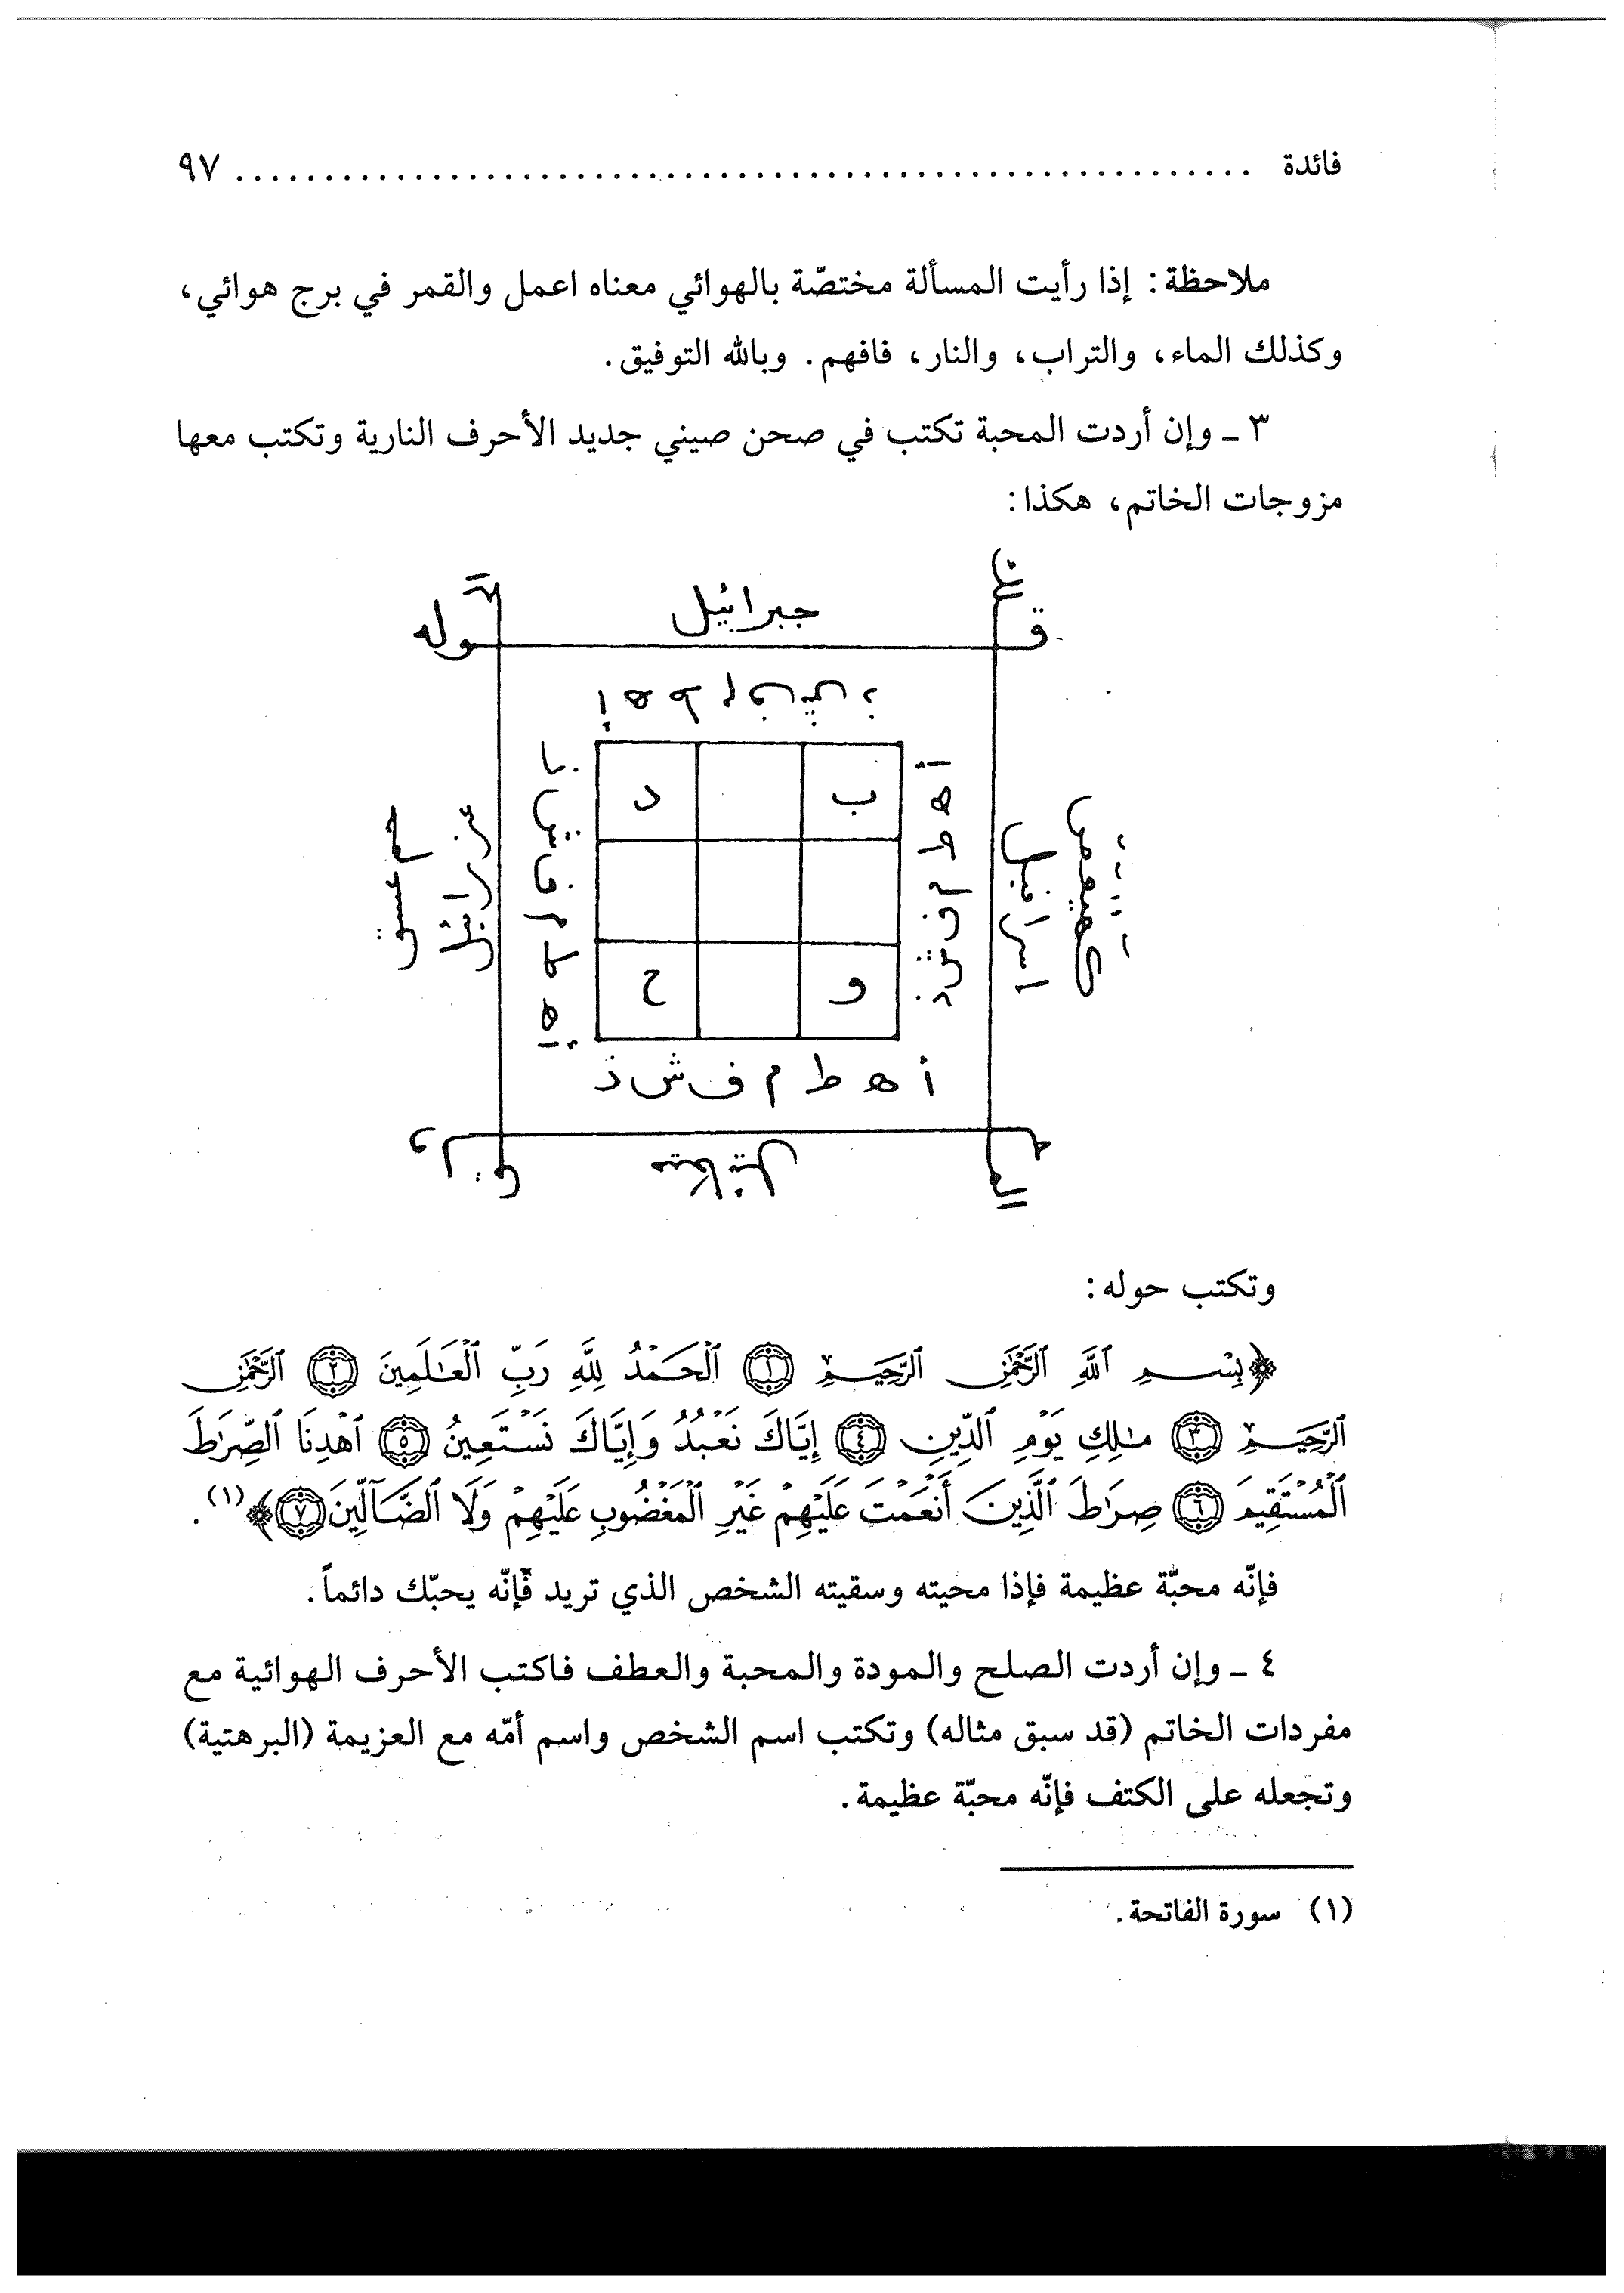 فائدة ........................................................ ٩٧
ملاحظة: إذا رأيت المسألة مختصّة بالهوائي معناه اعمل والقمر في برج هوائي،
وكذلك الماء، والتراب، والنار، فافهم. وبالله التوفيق.
٣ ـ وإن أردت المحبة تكتب في صحن صيني جديد الأحرف النارية وتكتب معها
مزوجات الخاتم، هكذا:
جبرائيل
قوله
أ ه ط م ف ش ذ
ب د
و ح
أ ه ط م ف ش ذ
أ ه ط م ف ش ذ
أ ه ط م ف ش ذ
اسرافيل
كهيعص
عزرائيل
حمعسق
ميكائيل
وتكتب حوله:
﴿بِسْمِ ٱللَّهِ ٱلرَّحْمَٰنِ ٱلرَّحِيمِ ١ ٱلْحَمْدُ لِلَّهِ رَبِّ ٱلْعَٰلَمِينَ ٢ ٱلرَّحْمَٰنِ
ٱلرَّحِيمِ ٣ مَٰلِكِ يَوْمِ ٱلدِّينِ ٤ إِيَّاكَ نَعْبُدُ وَإِيَّاكَ نَسْتَعِينُ ٥ ٱهْدِنَا ٱلصِّرَٰطَ
ٱلْمُسْتَقِيمَ ٦ صِرَٰطَ ٱلَّذِينَ أَنْعَمْتَ عَلَيْهِمْ غَيْرِ ٱلْمَغْضُوبِ عَلَيْهِمْ وَلَا ٱلضَّآلِّينَ ٧﴾(١).
فإنّه محبّة عظيمة فإذا محيته وسقيته الشخص الذي تريد فإنّه يحبّك دائماً.
٤ ـ وإن أردت الصلح والمودة والمحبة والعطف فاكتب الأحرف الهوائية مع
مفردات الخاتم (قد سبق مثاله) وتكتب اسم الشخص واسم أمّه مع العزيمة (البرهتية)
وتجعله على الكتف فإنّه محبّة عظيمة.
(١) سورة الفاتحة.